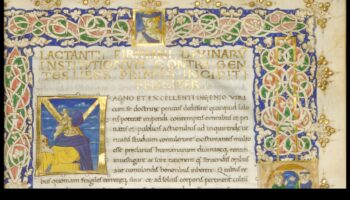 LACTANTI FIRMIANI DIVINARV
INSTITVTIONVM CONTRA GEN
TES LIBER PRIMVS INCIPIT
AGNO ET EXCELLENTI INGENIO VIRI
cum se doctrinę penitus dedidissent quicquid labo
ris poterat impendi contemptis omnibus et pri
uatis et publicis actionibus ad inquirendę ue
ritatis studium contulerunt existimantes multo
esse preclarius humanarum diuinarumque rerum
inuestigare ac scire rationem quam struendis opibus
aut cumulandis honoribus inherere. Quibus
rebus quoniam fragiles terrenęque sunt et ad solius corporis pertinent cultum